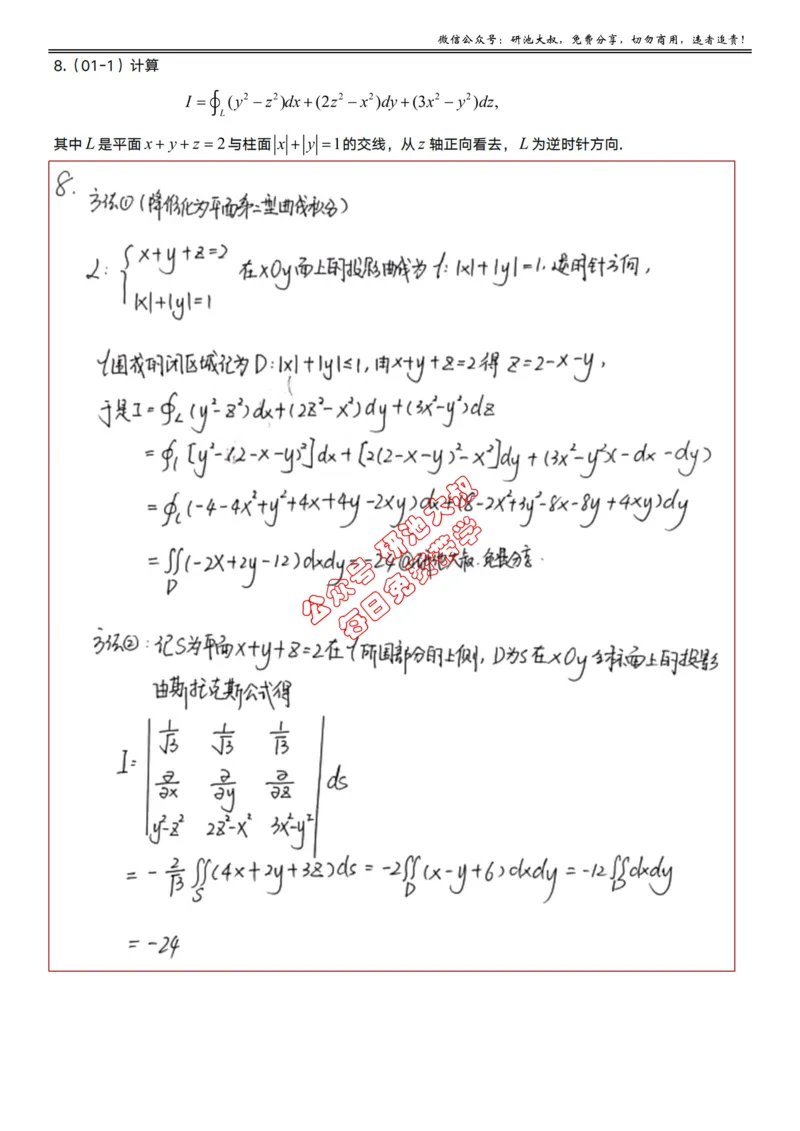 微信公众号：研池大叔，免费分享，切勿商用，违者追责！
8.（01-1）计算
I = ∮_L (y² − z²)dx + (2z² − x²)dy + (3x² − y²)dz,
其中L是平面x + y + z = 2与柱面|x| + |y| = 1的交线，从z轴正向看去，L为逆时针方向.
8.
方法①（降维化为平面第二型曲线积分）
L: { x+y+z=2
|x|+|y|=1
在xOy面上的投影曲线为 l: |x|+|y|=1. 逆时针方向，
l围成的闭区域记为D: |x|+|y|≤1, 由x+y+z=2得 z=2-x-y,
于是I=∮_L (y²-z²)dx+(2z²-x²)dy+(3x²-y²)dz
=∮_l [y²-(2-x-y)²]dx+[2(2-x-y)²-x²]dy+(3x²-y²)(-dx-dy)
=∮_L (-4-4x²+y²+4x+4y-2xy)dx+(8-2x²+3y²-8x-8y+4xy)dy
=∬_D (-2x+2y-12)dxdy=-24 @研池大叔.免费分享.
公众号 研池大叔
每日免费带学
方法②: 记S为平面x+y+z=2在l所围部分的上侧, D为S在xOy坐标面上的投影
由斯托克斯公式得
I= | 1/√3 1/√3 1/√3 |
| ∂/∂x ∂/∂y ∂/∂z | ds
| y²-z² 2z²-x² 3x²-y² |
= - 2/√3 ∬_S (4x+2y+3z)ds = -2∬_D (x-y+6)dxdy = -12∬_D dxdy
= -24